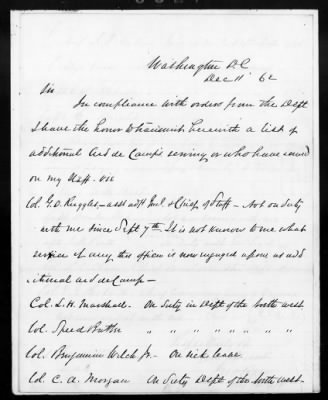 Washington D.C
Dec 11" 62
Sir
In compliance with orders from the Dept
I have the honor to transmit herewith a list of
additional Aid de Camps serving or who have served
on my Staff. viz
Col. G. D. Ruggles - asst adjt Genl & Chief of Staff - Not on duty
with me since Sept 7th. It is not known to me what
service if any, this officer is now engaged upon as add
itional aid de Camp -
Col. L. H. Marshall - On duty in Dept of the North west.
Col. Speed Butler " " " " " " "
Col. Benjamin Welch Jr. - On sick leave.
Col. C. A. Morgan On Duty Dept of the North west.